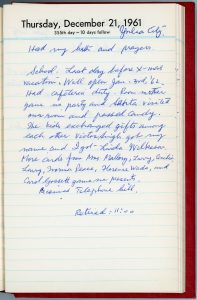 Thursday, December 21, 1961
355th day — 10 days follow
Had my bath and prayers.
School. Last day before X-mas
vacation. Will open Jan. 3rd, '62.
Had cafeteria duty. Room mother
gave us party and Santa visited
our room and passed candy.
The kids exchanged gifts among
each other. Victor Single got my
name and I got Linda
More cards from Mrs Mallory, Lucy,
Larry, Yvonne Pierce, Florence Wade, and
Carol gave me presents.
Received Telephone bill.
Retired: 11:00